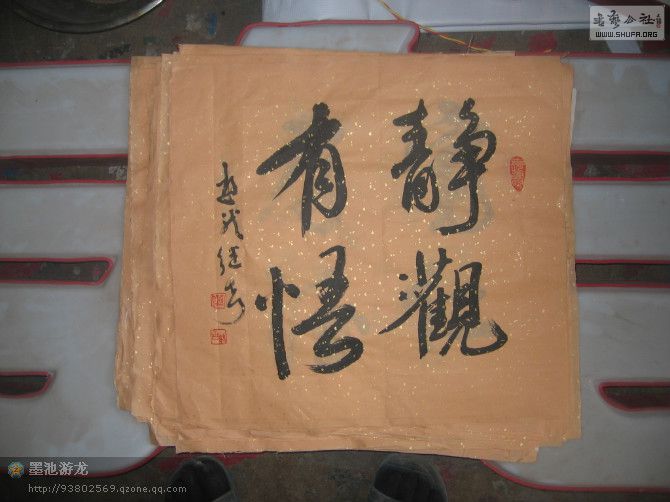 靜觀
有悟
書藝公社
WWW.SHUFA.ORG
墨池游龙
http://93802569.qzone.qq.com